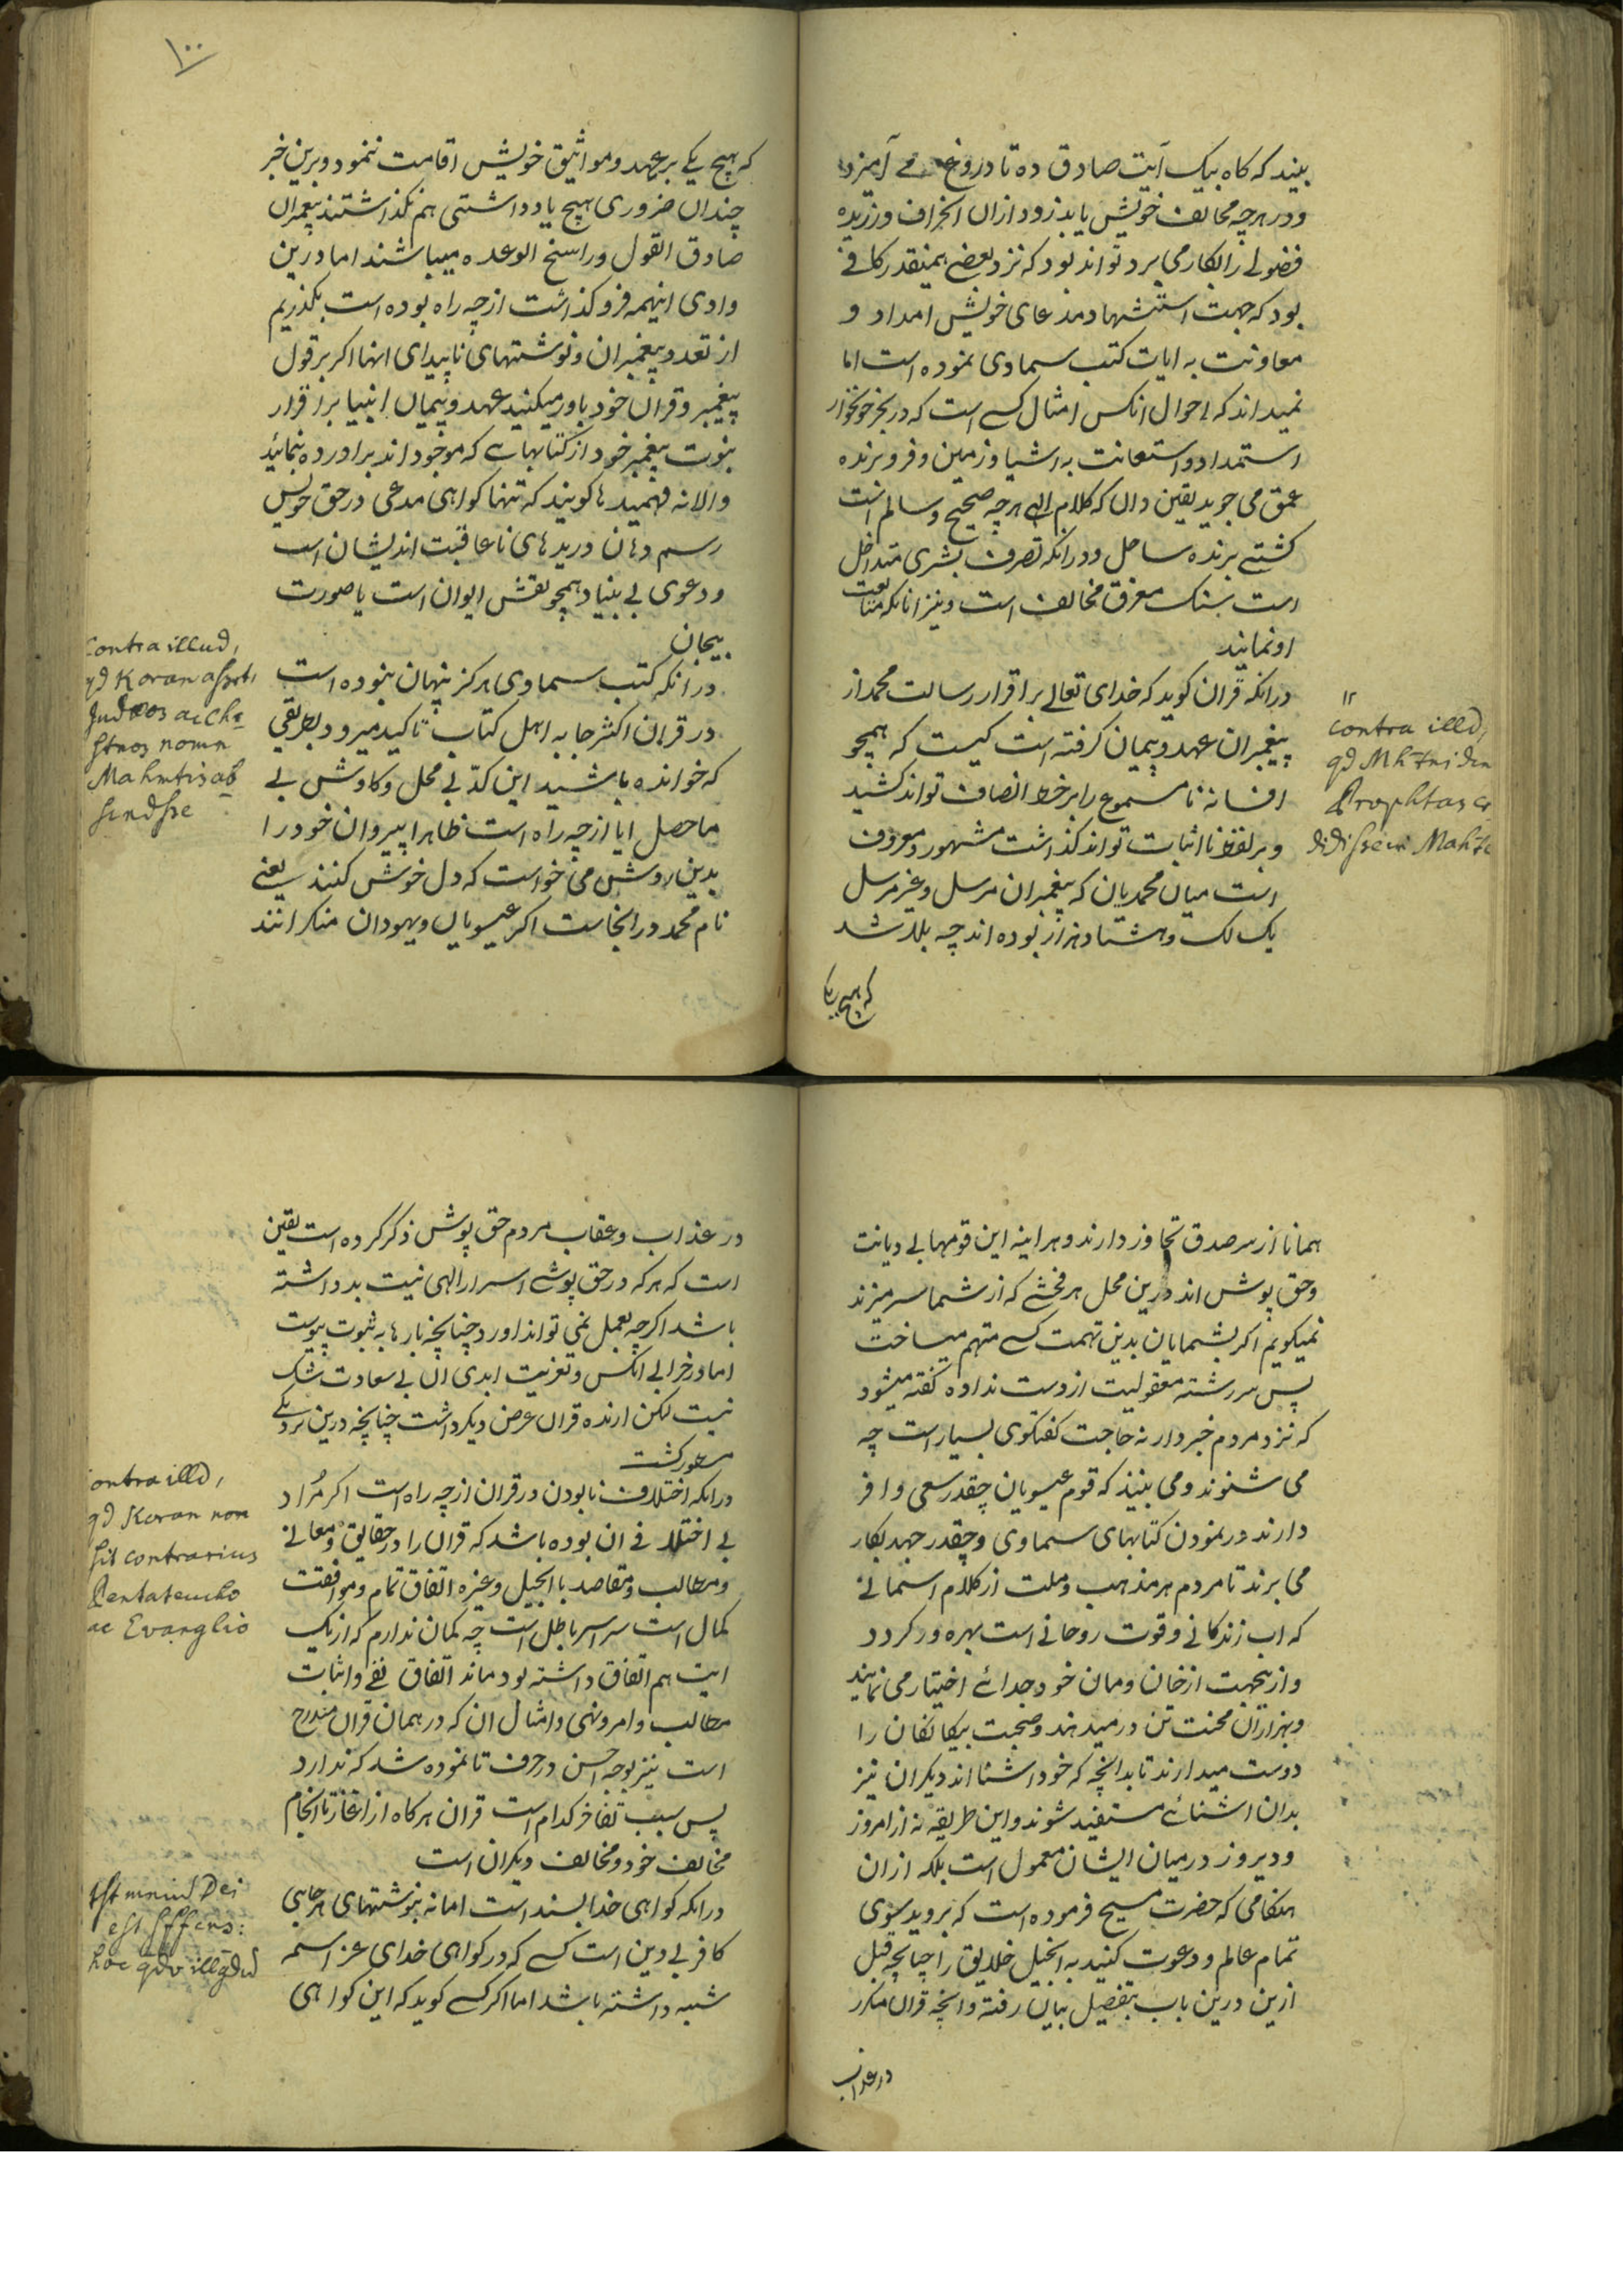 بیند که کاه بیک آیت صادق ده تا دروغ می آمیزد
و در هرچه مخالف خویش یابد زود ازان انحراف ورزیده
فضولی را بکار می برد تواند بود که نزد بعضی همینقدر کافی
بود که جهت استشهاد مدعای خویش امداد و
معاونت به ایات کتب سماوی نموده است اما
نمیداند که احوال انکس امثال کسی است که در بحر خونخوار
استمداد و استعانت به اشیا وزمین و فرو برنده
عمق می جوید یقین دان که کلام الهی هرچه صحیح و سالم است
کشتی برنده ساحل و درانکه تصرف بشری متداخل
است بسنک مغرق مخالف است و نیز انانکه متابعت
او نمایند
درانکه قران کوید که خدای تعالی بر اقرار رسالت محمد از
پیغمبران عهد و پیمان کرفته است کیست که همچو
افسانه نامسموع را بر خط انصاف تواند کشید
و بر لفظ اثبات تواند کذاشت مشهور و معروف
است میان محمدیان که پیغمبران مرسل و غیر مرسل
یک لک و هشتاد هزار بوده اند چه بلا شد
که هیچ یکی
۱۱
contra illd,
qd Mh
Prophtas
didisse
۱۰۰
که هیچ یکی بر عهد و مواثیق خویش اقامت ننمود و برین خبر
چندان ضروری هیچ یادداشتی هم نکذاشتند پیغمبران
صادق القول و راسخ الوعده میباشند اما درین
وادی اینهمه فروکذاشت از چه راه بوده است بکذریم
از تعدد پیغمبران و نوشتهای ناپیدای انها اکر بر قول
پیغمبر و قران خود باور میکنید عهد و پیمان انبیا بر اقرار
نبوت پیغمبر خود از کتابهایی که موجود اند براورده بنمائید
والا نه فهمیدها کویند که تنها کواهی مدعی در حق خویش
رسم دهان دریدهای ناعاقبت اندیشان است
و دعوی بی بنیاد همچو نقش ایوان است یا صورت
بیجان
درانکه کتب سماوی هرکز پنهان نبوده است
در قران اکثر جا به اهل کتاب تاکید میرود بطریقی
که خوانده باشید این کد بی محل و کاوش بی
ماحصل ایا از چه راه است ظاهرا پیروان خود را
بدین روش می خواست که دل خوش کنند یعنی
نام محمد درانجاست اکر عیسویان و یهودان منکر انند
Contra illud,
qd Koran
Judæos ac Chr
stnos nomn
Mahmtis ab
همانا از سر صدق تجاوز دارند و هراینه این قومها بی دیانت
و حق پوش اند درین محل هر فحشی که از شما سر میزند
نمیکویم اکر بشمایان بدین تهمت کسی متهم میساخت
پس سررشته معقولیت از دست نداده کفته میشود
که نزد مردم خبردار نه حاجت کفتکوی بسیار است چه
می شنوند و می بینند که قوم عیسویان چقدر سعی وافر
دارند در نمودن کتابهای سماوی و چقدر جهد بکار
می برند تا مردم هر مذهب و ملت از کلام اسمانی
که اب زندکانی و قوت روحانی است بهره ور کردد
و ازینجهت از خان و مان خود جدائی اختیار می نمایند
و بهزاران محنت تن در میدهند و صحبت بیکانکان را
دوست میدارند تا بدانچه که خود اشنا اند دیکران نیز
بدان اشنائی مستفید شوند و این طریقه نه از امروز
و دیروز درمیان ایشان معمول است بلکه ازان
هنکامی که حضرت مسیح فرموده است که بروید بسوی
تمام عالم و دعوت کنید به انجیل خلایق را چنانچه قبل
ازین درین باب بتفصیل بیان رفته و انچه قران مکرر
در عذاب
در عذاب و عقاب مردم حق پوش ذکر کرده است یقین
است که هرکه در حق پوشی اسرار الهی نیت بد داشته
باشد اکرچه بعمل نمی تواند اورد چنانچه بارها به ثبوت پیوست
اما در خرابی انکس و تعزیت ابدی ان بی سعادت شک
نیست لکن ارنده قران غرض دیکر داشت چنانچه درین نزدیکی
مسطور کشت
درانکه اختلاف نابودن در قران از چه راه است اکر مراد
بی اختلافی ان بوده باشد که قران را در حقایق و معانی
و مطالب و مقاصد با انجیل و غیره اتفاق تمام و موافقت
کمال است سراسر باطل است چه کمان ندارم که از یک
ایت هم اتفاق داشته بود ماند اتفاق نفی و اثبات
مطالب و امر و نهی و امثال ان که در همان قران مندرج
است نیز بوجه احسن در حرف تا نموده شد که ندارد
پس سبب تفاخر کدام است قران هرکاه از اغاز تا انجام
مخالف خود و مخالف دیکران است
درانکه کواهی خدا بسند است اما نه بنوشتهای هر جایی
کافر بی دین است کسی که در کواهی خدای عز اسمه
شبه داشته باشد اما اکر کسی کوید که این کواهی
ontra illd,
qd Koran non
sit contrarius
Pentateucho
ac Evanglio
tstmniu Dei
est sffcns: